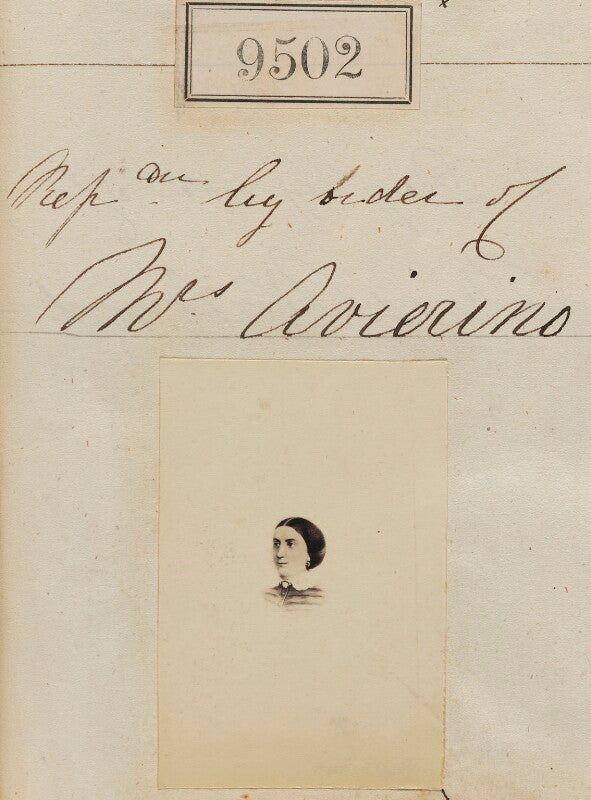 9502
Rep.on by order of
Mrs. Avierino